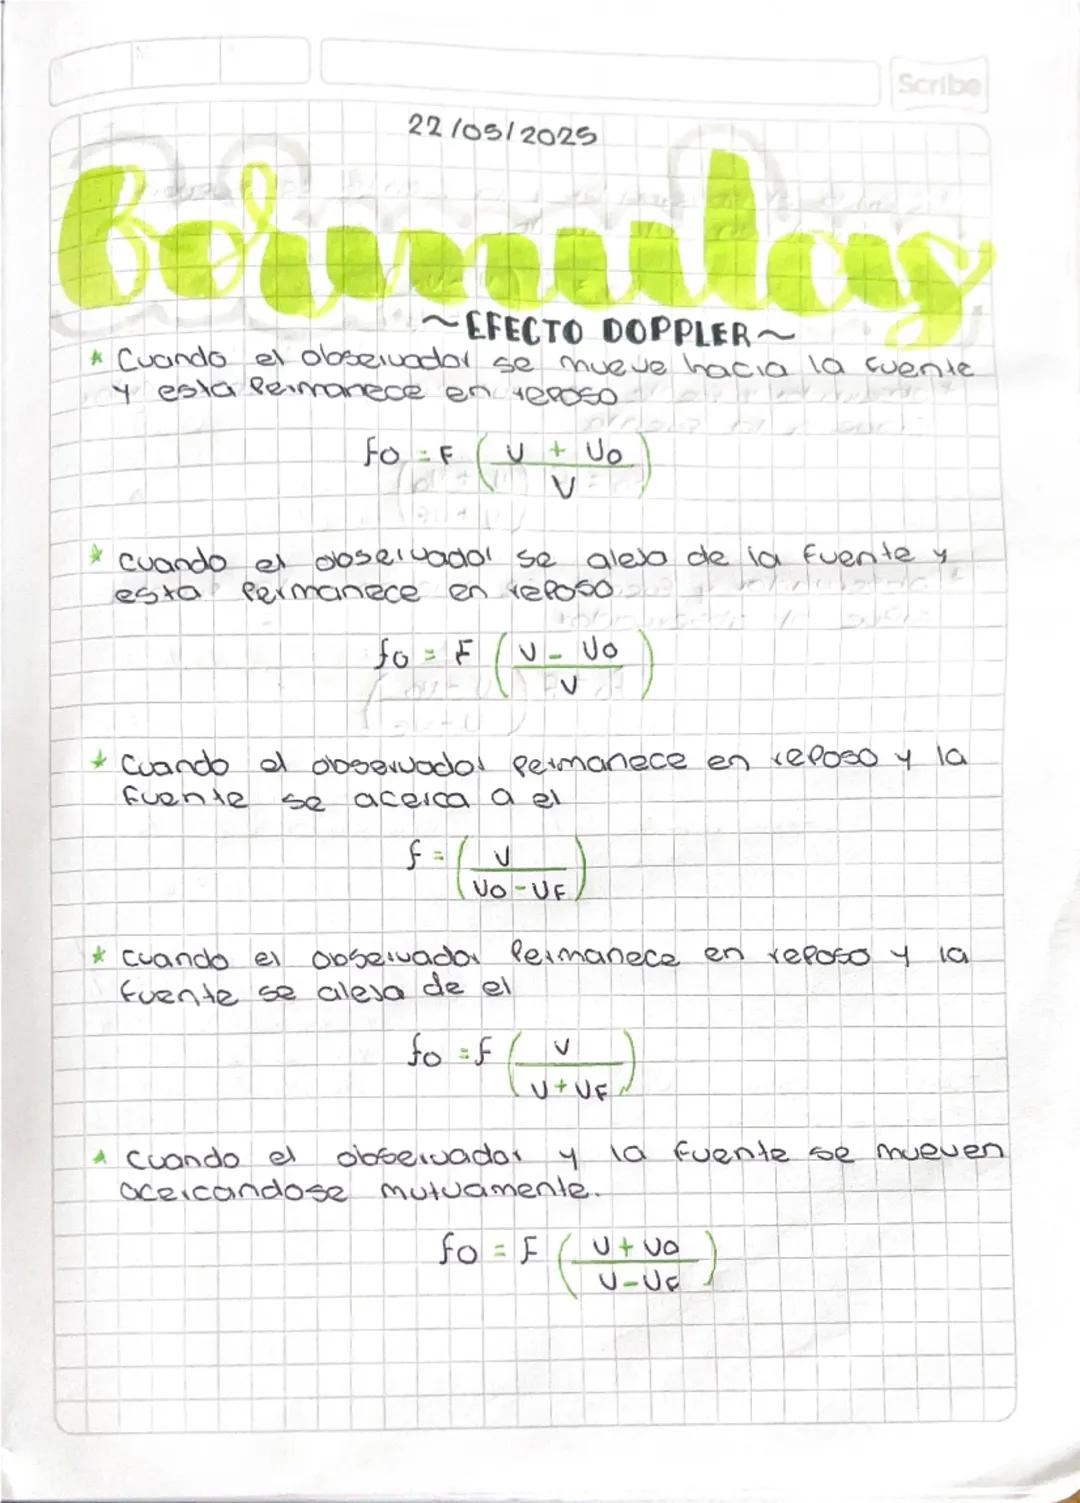 Scribe
22/05/2025
Formulas
~EFECTO DOPPLER~
* Cuando el observador se mueve hacia la fuente
y esta permanece en reposo
fo = F ( V + Vo / V )
* Cuando el observador se aleja de la fuente y
esta permanece en reposo
fo = F ( V - Vo / V )
* Cuando el observador permanece en reposo y la
fuente se acerca a el
f = ( V / Vo - VF )
* Cuando el observador permanece en reposo y la
fuente se aleja de el
fo = f ( V / V + VF )
* Cuando el observador y la fuente se mueven
acercandose mutuamente.
fo = F ( V + Vo / V - VF )